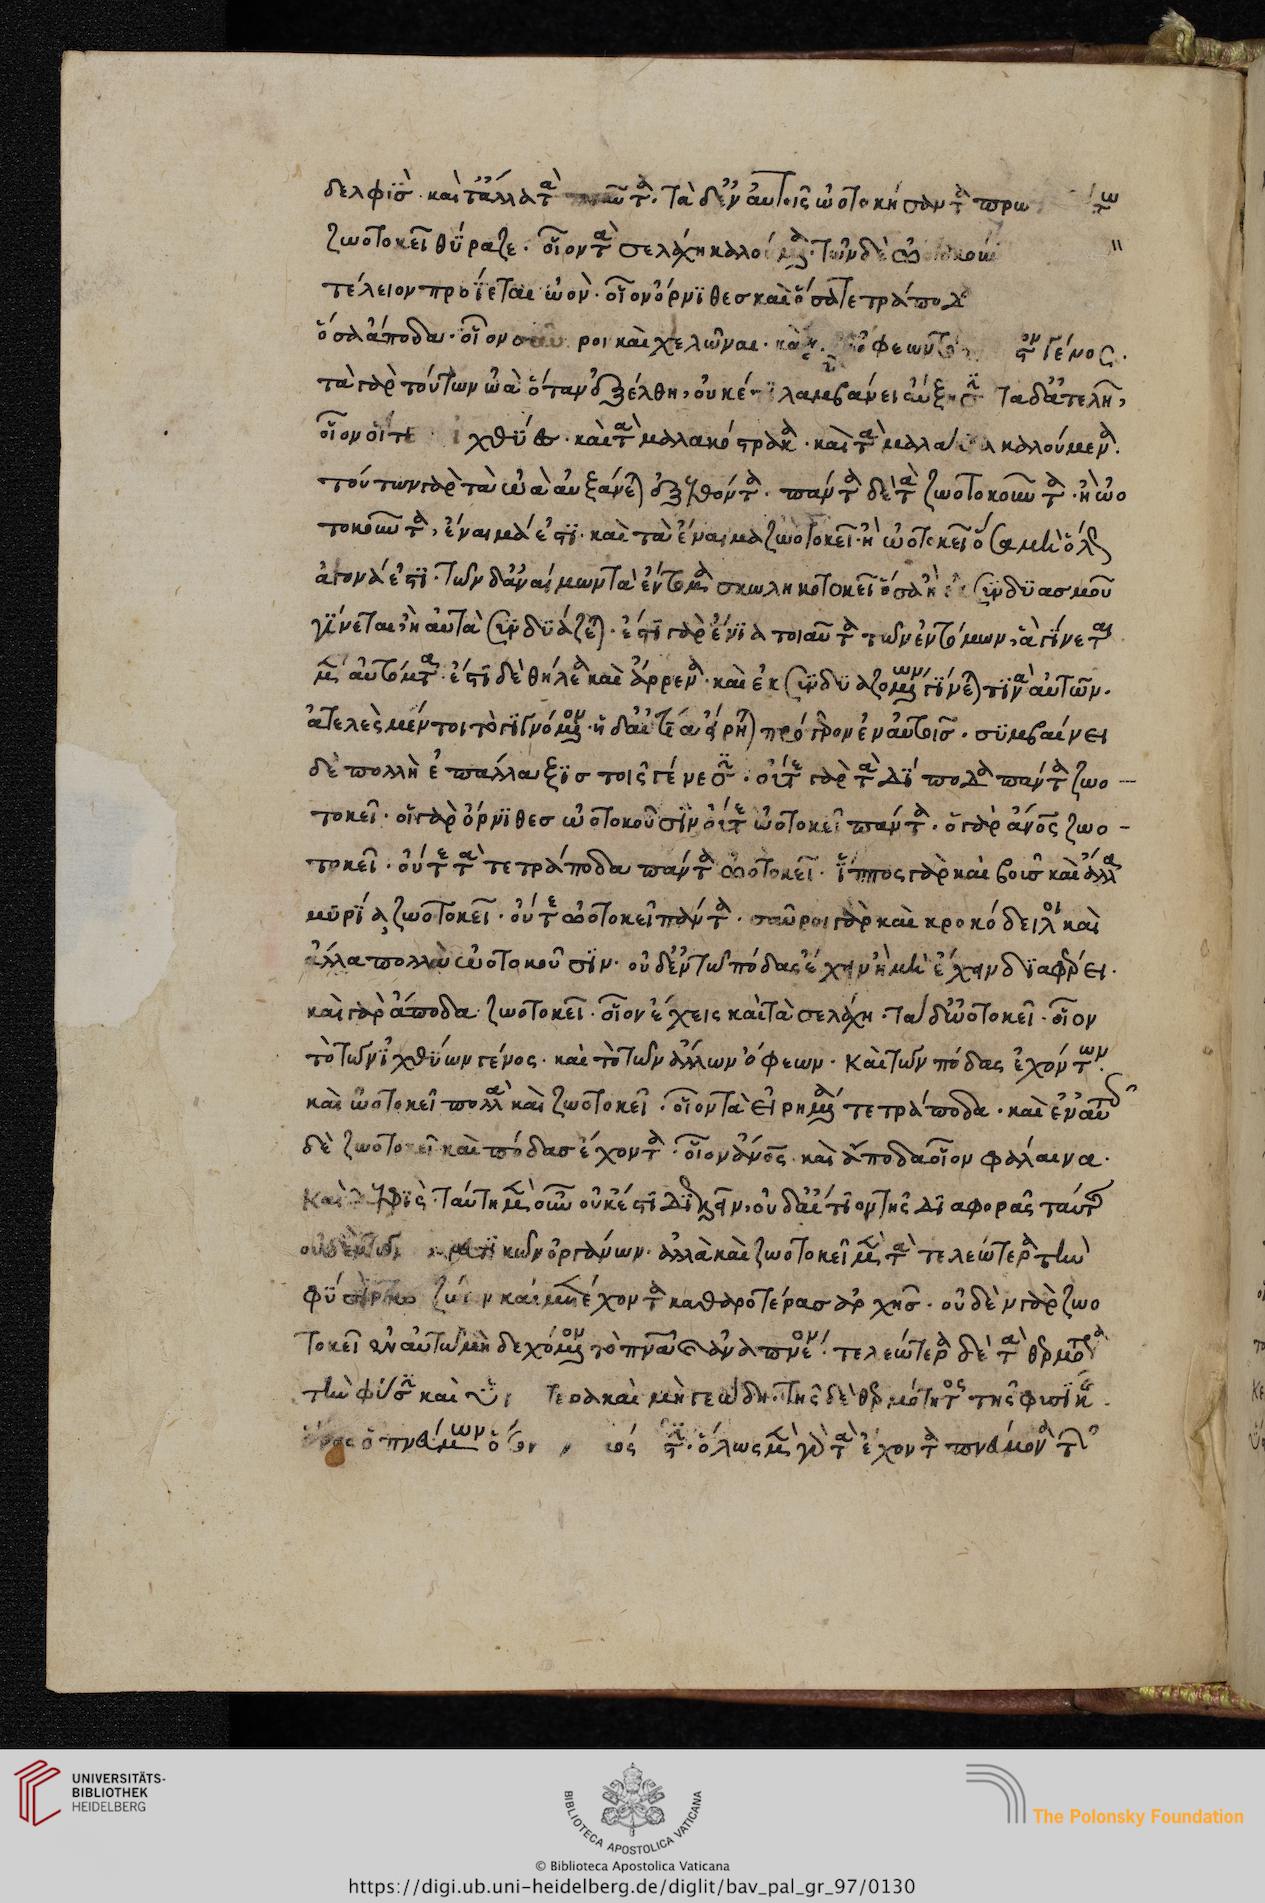 δελφὶς· καὶ τἄλλα τὰ τοιαῦτα· τὰ δ' ἐν αὑτοῖς ὠοτοκήσαντα πρῶτον
ζωοτοκεῖ θύραζε· οἷον τὰ σελάχη καλούμενα· τῶν δὲ ὠοτοκούν
τέλειον προΐεται ὠόν· οἷον ὄρνιθες καὶ ὅσα τετράποδα
ὅσα ἄποδα· οἷον σαῦροι καὶ χελῶναι· καὶ ὄφεων γένος·
τὰ γὰρ τούτων ὠὰ ὅταν ἐξέλθῃ, οὐκέτι λαμβάνει αὔξησιν τὰ δ' ἀτελῆ,
οἷον οἵ τε ἰχθύες· καὶ τὰ μαλακόστρακα· καὶ τὰ μαλάκια καλούμενα·
τούτων γὰρ τὰ ὠὰ αὐξάνεται ἐξελθόντα· πάντα δὲ τὰ ζωοτοκοῦντα· ἢ ὠο
τοκοῦντα, ἔναιμά ἐστι· καὶ τὰ ἔναιμα ζωοτοκεῖ· ἢ ὠοτοκεῖ ὅσα μὴ ὅλως
ἄγονά ἐστι· τῶν δ' ἀναίμων τὰ ἔντομα σκωληκοτοκεῖ ὅσα ἢ ἐκ συνδυασμοῦ
γίνεται, ἢ αὐτὰ συνδυάζεται· ἔστι γὰρ ἔνια τοιαῦτα τῶν ἐντόμων, ἃ γίνεται
μὲν αὐτόματα· ἔστι δὲ θήλεα καὶ ἄρρενα· καὶ ἐκ συνδυαζομένων γίνεταί τινα αὐτῶν·
ἀτελὲς μέντοι τὸ γιγνόμενον· ἡ δ' αἰτία εἴρηται πρότερον ἐν αὐτοῖς· συμβαίνει
δὲ πολλὴ ἐπάλλαξις τοῖς γένεσι· οὔτε γὰρ τὰ δίποδα πάντα ζωο
τοκεῖ· οἱ γὰρ ὄρνιθες ὠοτοκοῦσιν οὔτε ὠοτοκεῖ πάντα· ὁ γὰρ ἄνος ζωο
τοκεῖ· οὔτε τὰ τετράποδα πάντα ὠοτοκεῖ· ἵππος γὰρ καὶ βοῦς καὶ ἄλλα
μυρία ζωοτοκεῖ· οὔτε ὠοτοκεῖ πάντα· σαῦροι γὰρ καὶ κροκόδειλοι καὶ
ἄλλα πολλὰ ὠοτοκοῦσιν· οὐδ' ἐν τῷ πόδας ἔχειν ἢ μὴ ἔχειν διαφέρει·
καὶ γὰρ ἄποδα ζωοτοκεῖ· οἷον ἔχεις καὶ τὰ σελάχη· τὰ δ' ὠοτοκεῖ· οἷον
τὸ τῶν ἰχθύων γένος· καὶ τὸ τῶν ἄλλων ὄφεων· καὶ τῶν πόδας ἐχόντων·
καὶ ὠοτοκεῖ πολλὰ καὶ ζωοτοκεῖ· οἷον τὰ εἰρημένα τετράποδα· καὶ ἐν αὑτοῖς
δὲ ζωοτοκεῖ καὶ πόδας ἔχοντα· οἷον ἄνος καὶ ἄποδα οἷον φάλαινα·
καὶ δελφὶς· ταύτῃ μὲν οὖν οὐκ ἔστι διελεῖν, οὐδ' αἴτιον τῆς διαφορᾶς ταύτης
οὐδὲν τῶν πορευτικῶν ὀργάνων· ἀλλὰ καὶ ζωοτοκεῖ μὲν τὰ τελεώτερα τὴν
φύσιν τῶν ζῴων καὶ μετέχοντα καθαρωτέρας ἀρχῆς· οὐδὲν γὰρ ζωο
τοκεῖ ἐν αὑτῷ μὴ δεχόμενον τὸ πνεῦμα καὶ ἀναπνέον· τελεώτερα δὲ τὰ θερμότερα
τὴν φύσιν καὶ ὑγρότερα καὶ μὴ γεώδη· τῆς δὲ θερμότητος τῆς φυσικῆς
ὅρος ὁ πνεύμων ὅσων ἔναιμός ἐστι· ὅλως μὲν γὰρ τὰ ἔχοντα πνεύμονα τῶν
UNIVERSITÄTS-
BIBLIOTHEK
HEIDELBERG
BIBLIOTECA APOSTOLICA VATICANA
The Polonsky Foundation
© Biblioteca Apostolica Vaticana
https://digi.ub.uni-heidelberg.de/diglit/bav_pal_gr_97/0130